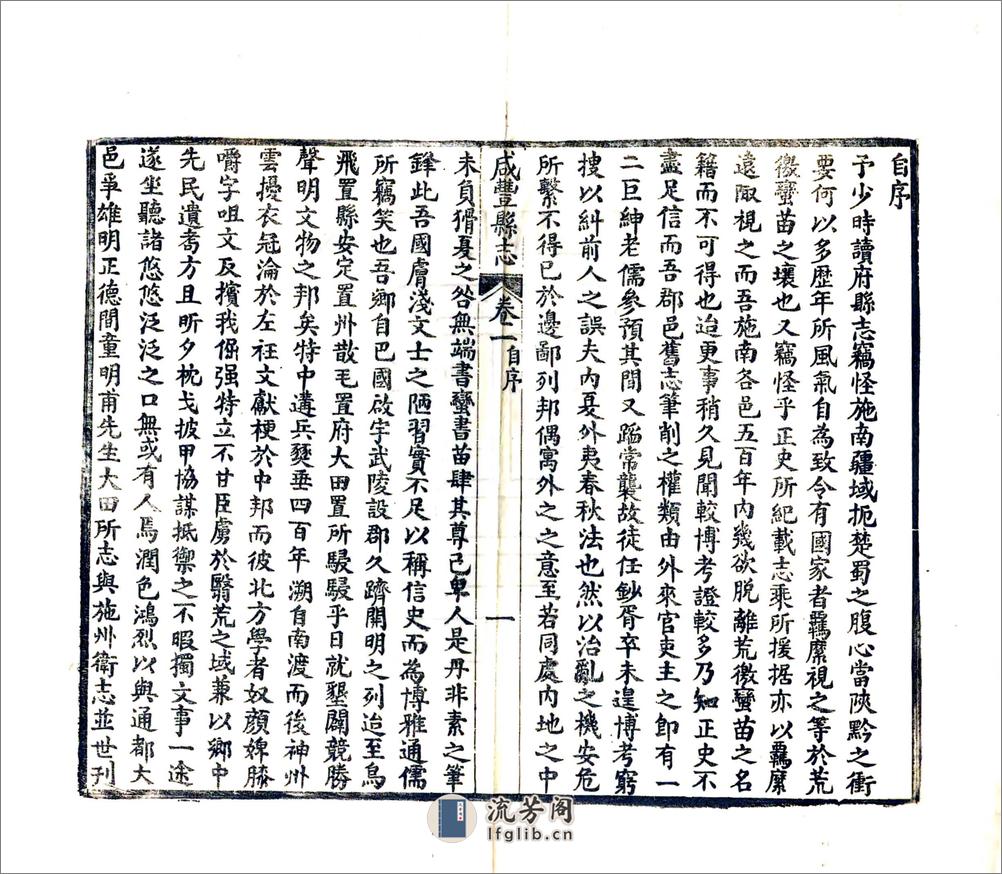 自序
予少時讀府縣志竊怪施南疆域扼楚蜀之腹心當陝黔之衝
要何以多歷年所風氣自為致令有國家者羈縻視之等於荒
徼蠻苗之壤也又竊怪乎正史所紀載志乘所援据亦以羈縻
遠陬視之而吾施南各邑五百年內幾欲脫離荒徼蠻苗之名
籍而不可得也迨更事稍久見聞較博考證較多乃知正史不
盡足信而吾郡邑舊志筆削之權類由外來官吏主之即有一
二巨紳老儒參預其間又蹈常襲故徒任鈔胥卒未遑博考窮
搜以糾前人之誤夫內夏外夷春秋法也然以治亂之機安危
所繫不得已於邊鄙列邦偶寓外之之意至若同處內地之中
咸豐縣志
卷一
自序
一
未負猾夏之咎無端書蠻書苗肆其尊己卑人是丹非素之筆
鋒此吾國膚淺文士之陋習實不足以稱信史而為博雅通儒
所竊笑也吾鄉自巴國啟宇武陵設郡久躋開明之列迨至烏
飛置縣安定置州散毛置府大田置所駸駸乎日就墾闢競勝
聲明文物之邦矣特中遘兵燹垂四百年溯自南渡而後神州
雲擾衣冠淪於左衽文獻梗於中邦而彼北方學者奴顏婢膝
嚼字咀文反擯我倔强特立不甘臣虜於醫荒之域兼以鄉中
先民遺耇方且昕夕枕戈披甲協謀抵禦之不暇獨文事一途
遂坐聽諸悠悠泛泛之口無或有人焉潤色鴻烈以與通都大
邑爭雄明正德間童明甫先生大田所志與施州衛志並世刊
流芳阁
lfglib.cn